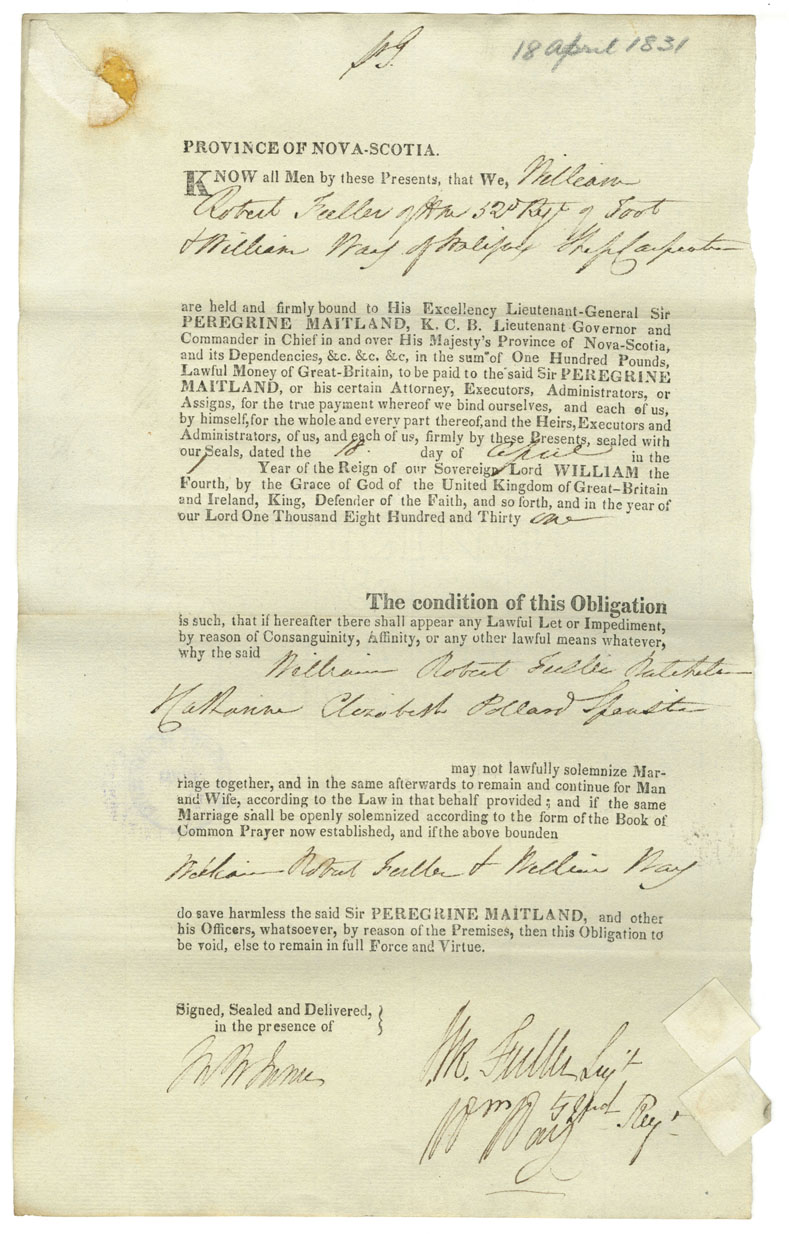 18 April 1831
PROVINCE OF NOVA-SCOTIA.
KNOW all Men by these Presents, that We, William
Robert Fuller of HM 52d Regt of Foot
& William Way of Halifax Ship Carpenter
are held and firmly bound to His Excellency Lieutenant-General Sir
PEREGRINE MAITLAND, K. C. B. Lieutenant Governor and
Commander in Chief in and over His Majesty's Province of Nova-Scotia,
and its Dependencies, &c. &c. &c, in the sum of One Hundred Pounds,
Lawful Money of Great-Britain, to be paid to the said Sir PEREGRINE
MAITLAND, or his certain Attorney, Executors, Administrators, or
Assigns, for the true payment whereof we bind ourselves, and each of us,
by himself, for the whole and every part thereof, and the Heirs, Executors and
Administrators, of us, and each of us, firmly by these Presents, sealed with
our Seals, dated the 18. day of April in the
Year of the Reign of our Sovereign Lord WILLIAM the
Fourth, by the Grace of God of the United Kingdom of Great-Britain
and Ireland, King, Defender of the Faith, and so forth, and in the year of
our Lord One Thousand Eight Hundred and Thirty one
The condition of this Obligation
is such, that if hereafter there shall appear any Lawful Let or Impediment,
by reason of Consanguinity, Affinity, or any other lawful means whatever,
why the said William Robert Fuller Batchelor
Katharine Elizabeth Pollard Spinster
may not lawfully solemnize Mar-
riage together, and in the same afterwards to remain and continue for Man
and Wife, according to the Law in that behalf provided; and if the same
Marriage shall be openly solemnized according to the form of the Book of
Common Prayer now established, and if the above bounden
William Robert Fuller & William Way
do save harmless the said Sir PEREGRINE MAITLAND, and other
his Officers, whatsoever, by reason of the Premises, then this Obligation to
be void, else to remain in full Force and Virtue.
Signed, Sealed and Delivered,
in the presence of
Fuller
52nd Regt
Wm Way